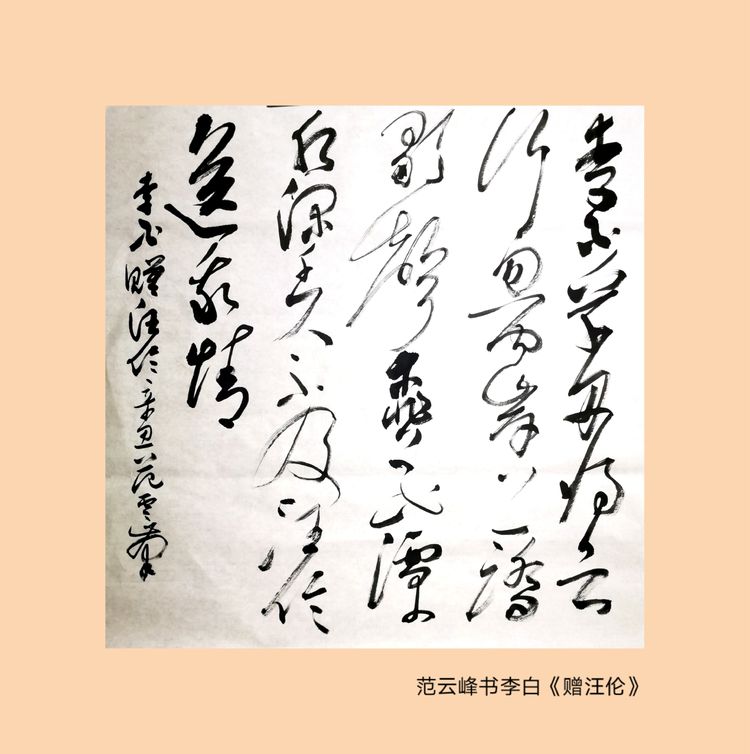 李白乘舟将欲
行忽闻岸上踏
歌聲桃花潭
水深千尺不及汪伦
送我情
李白赠汪伦辛丑范雲峯
范云峰书李白《赠汪伦》